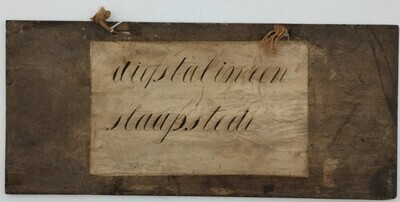 diefstal in een
slaapstede